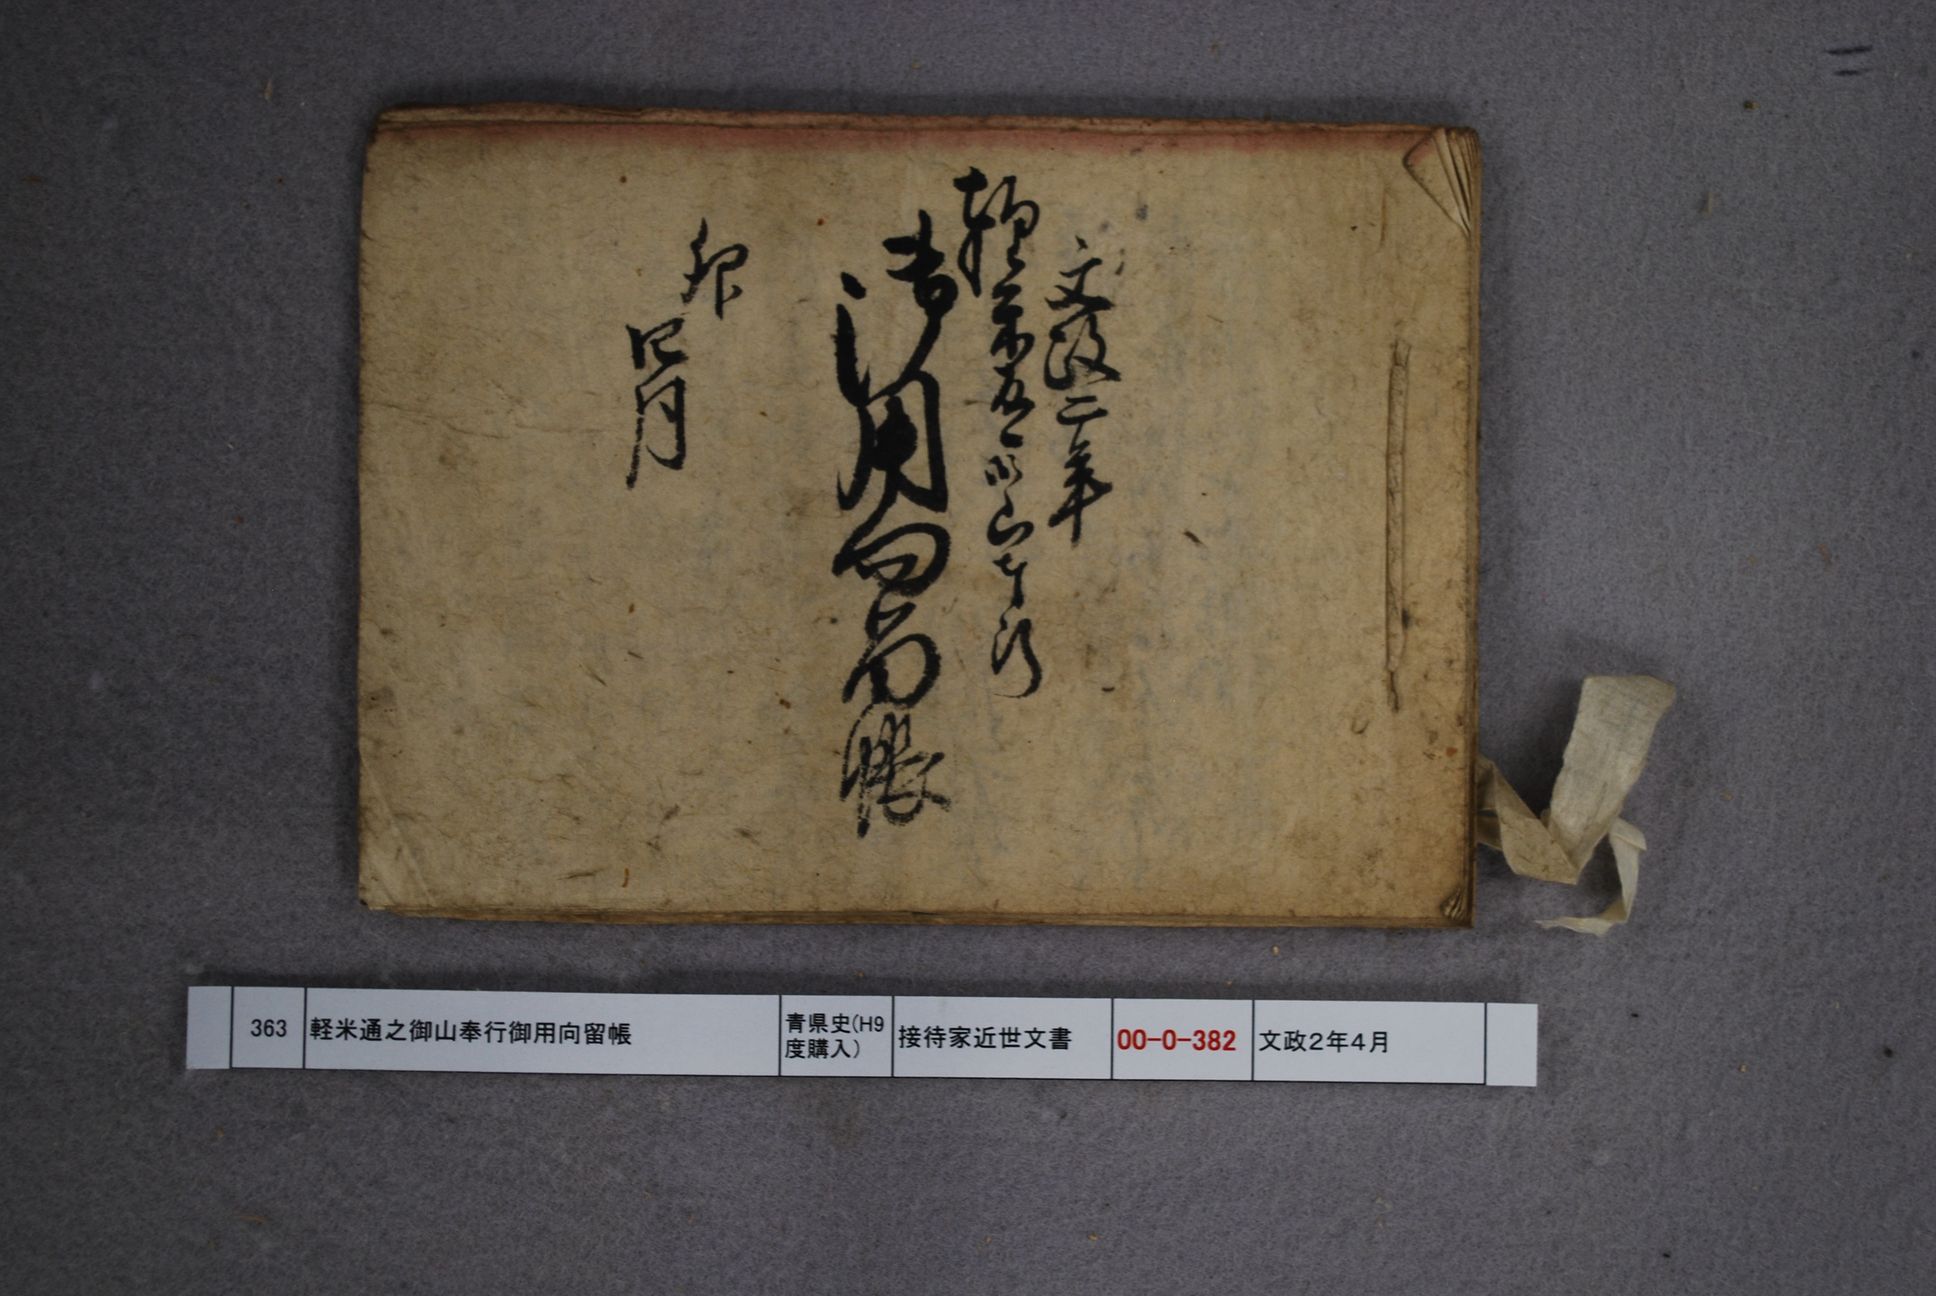 文政二年
軽米通之御山奉行
御用向留帳
卯
四月
363
軽米通之御山奉行御用向留帳
青県史(H9
度購入)
接待家近世文書
00-0-382
文政2年4月